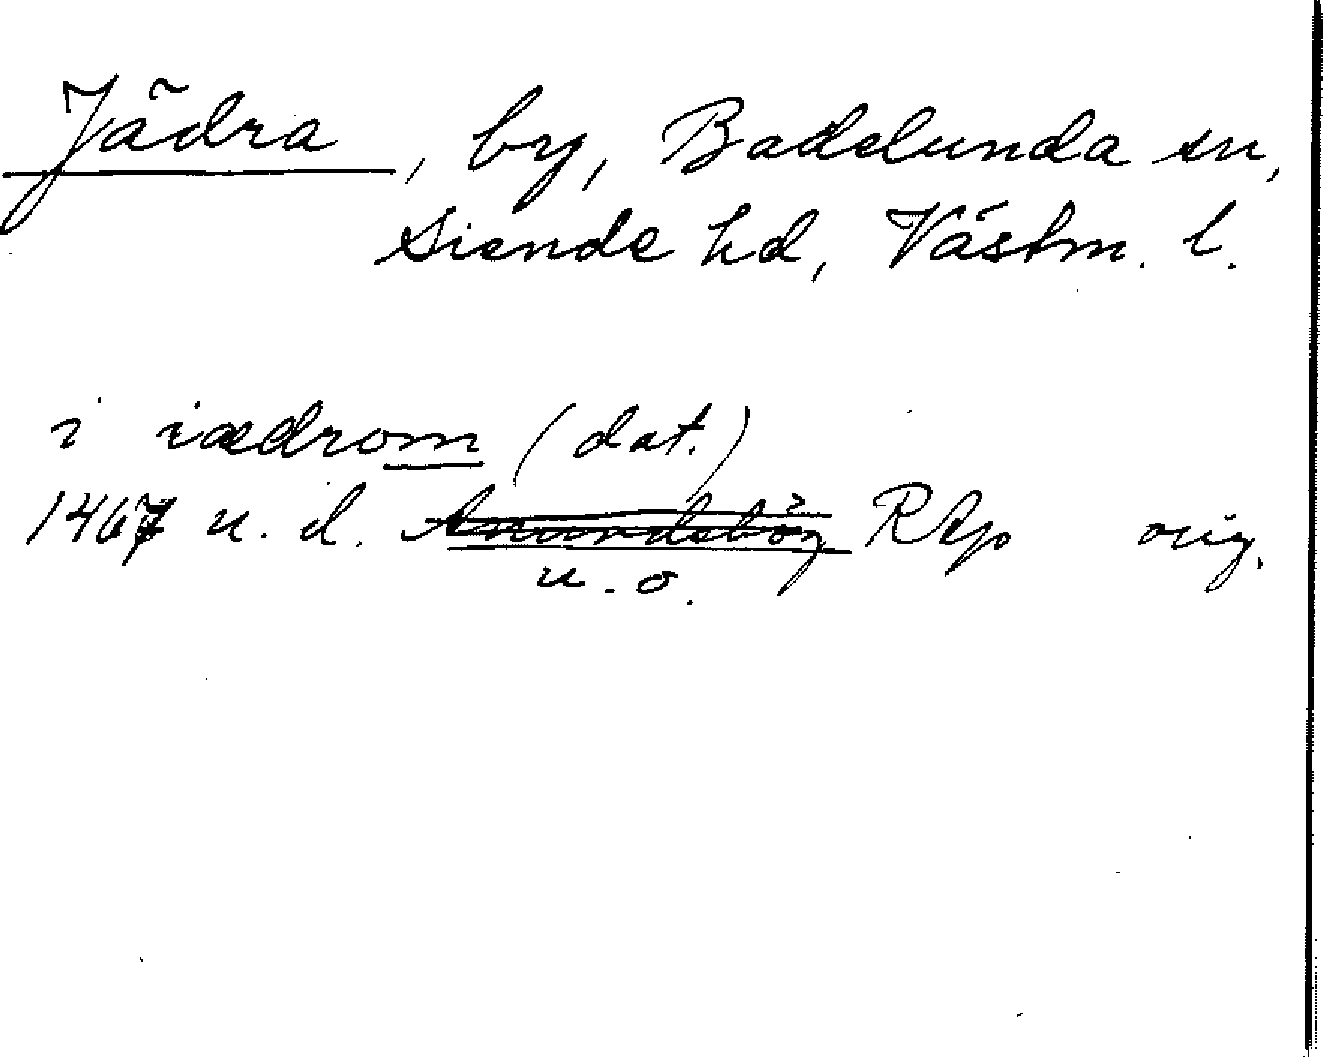 Jädra, by, Badelunda sn,
Siende hd, Västm. l.
i iædrom (dat.)
1467 u. d. Amundsbög RAp orig.
u. o.